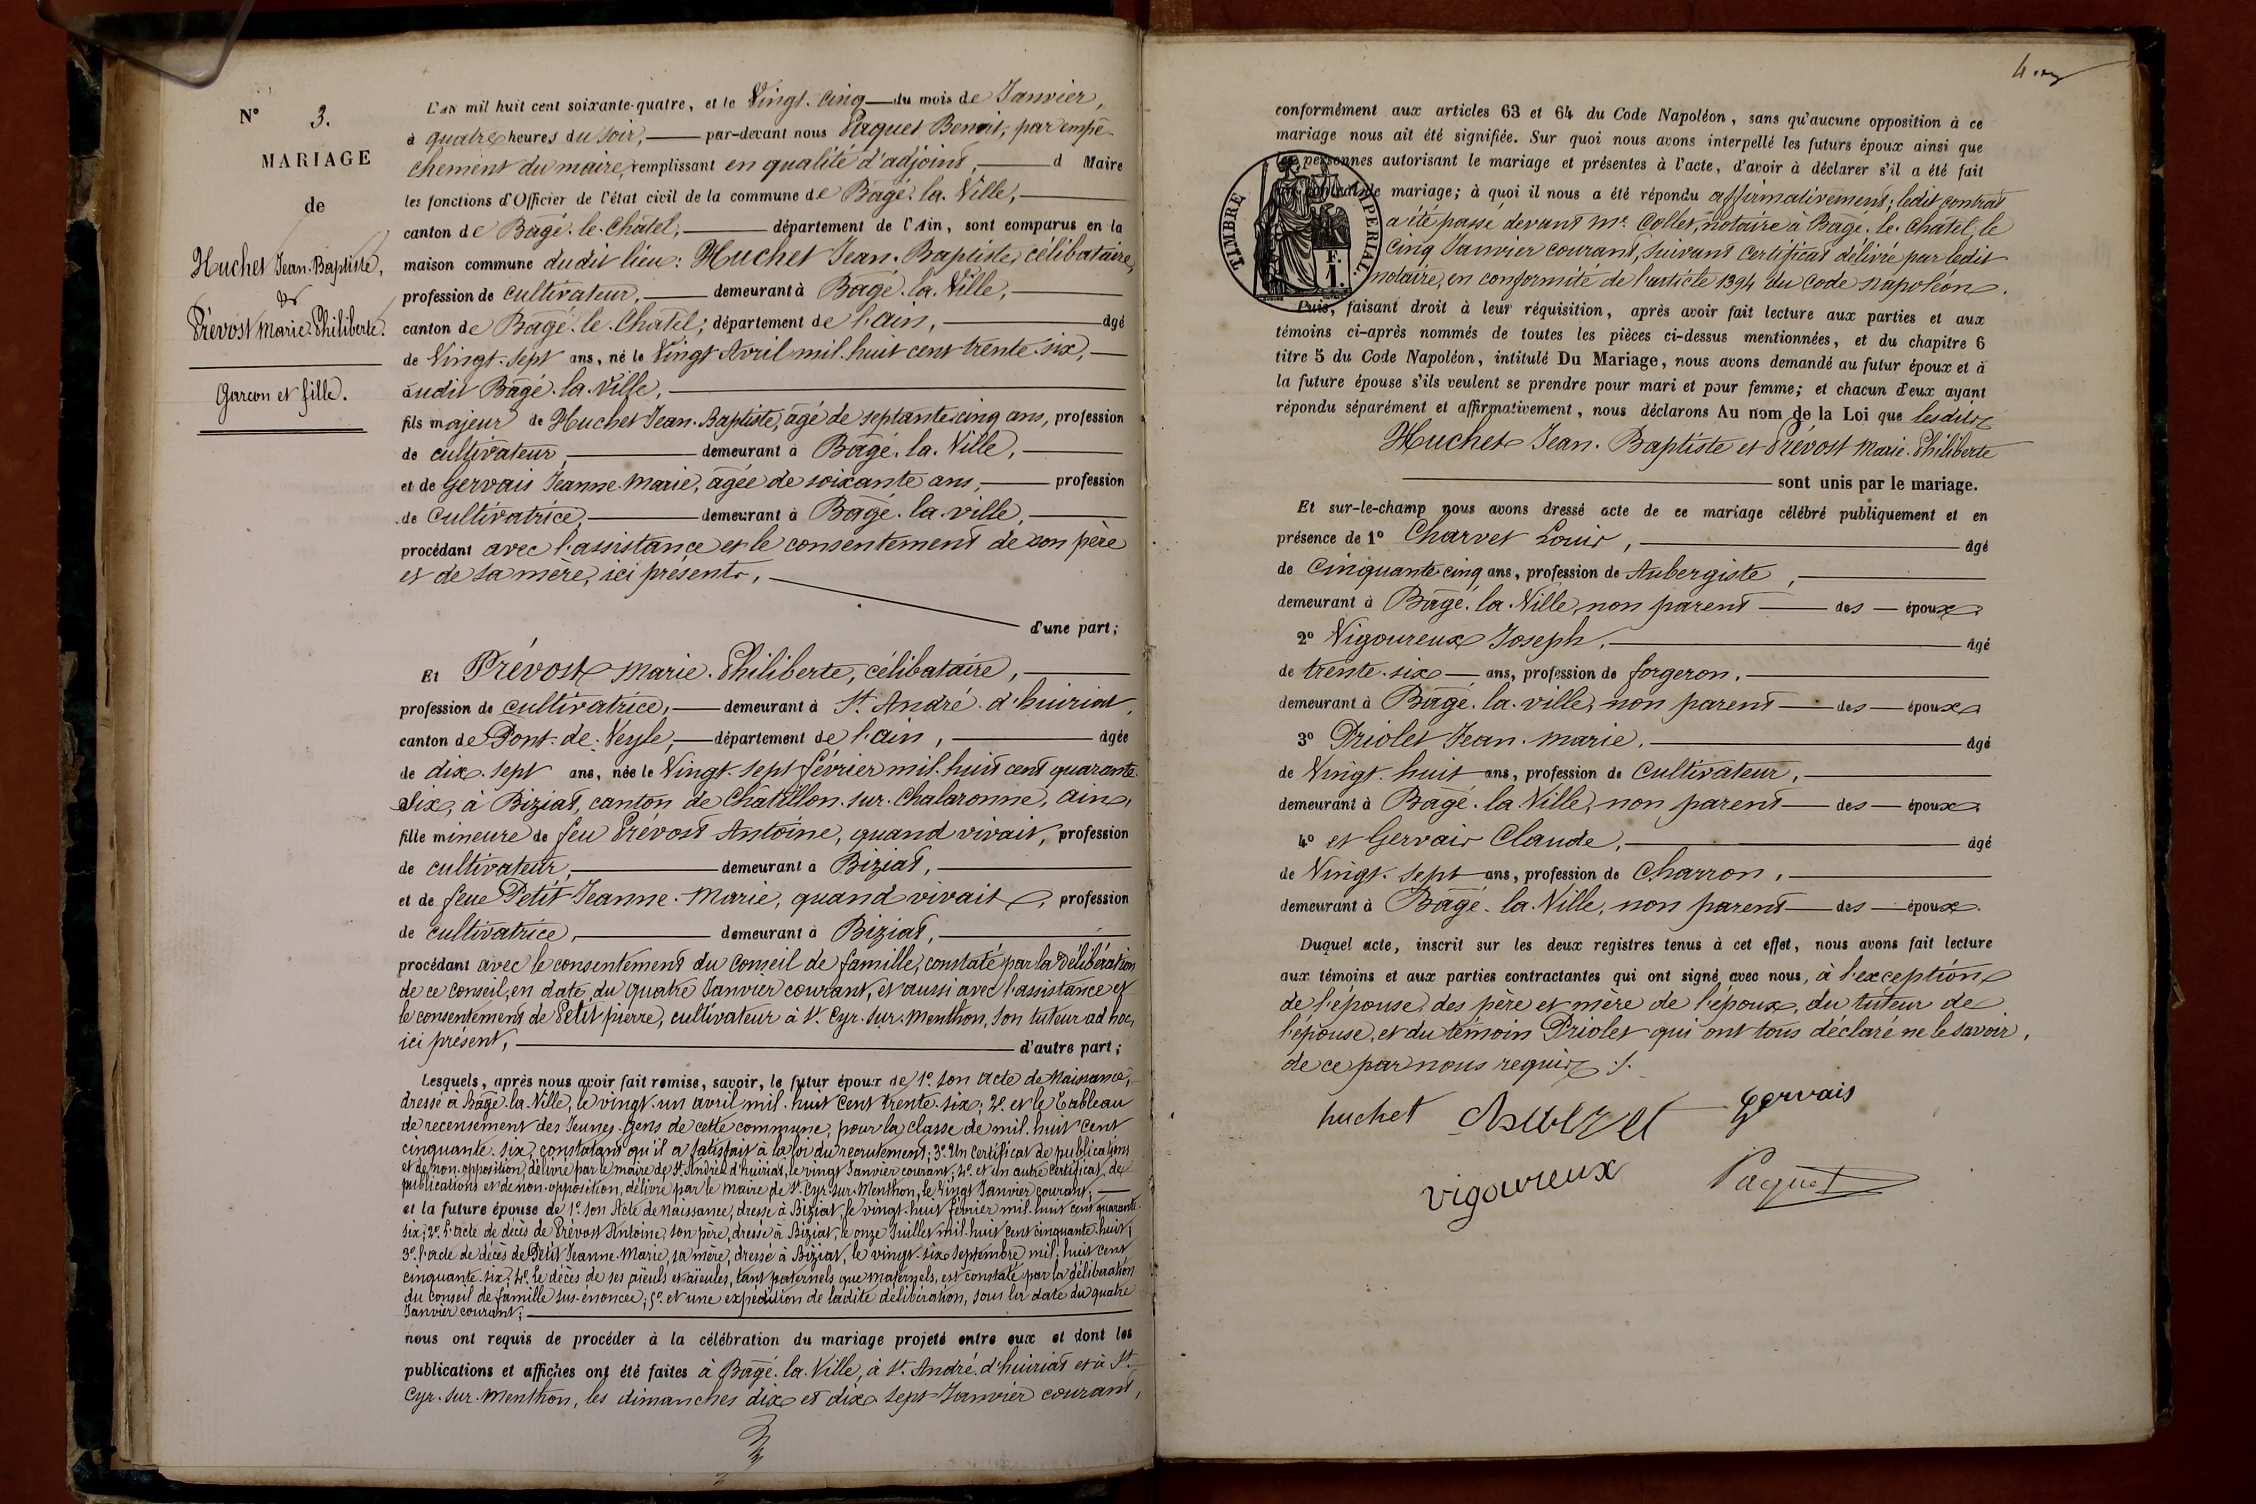 N° 3.
MARIAGE
de
Huchet Jean-Baptiste,
et
Prévost Marie-Philiberte.
Garcon et fille.
L'an mil huit cent soixante-quatre, et le Vingt-Cinq du mois de Janvier,
à quatre heures du soir, par-devant nous Paquet Benoit, par empê-
chement du maire, remplissant en qualité d'adjoint, d Maire
les fonctions d'Officier de l'état civil de la commune de Bâgé-la-Ville,
canton de Bâgé-le-Châtel, département de l'Ain, sont comparus en la
maison commune dudit lieu: Huchet Jean-Baptiste, célibataire,
profession de cultivateur, demeurant à Bâgé-la-Ville,
canton de Bâgé-le-Châtel, département de l'ain, âgé
de Vingt-sept ans, né le Vingt Avril mil-huit cent trente-six,
audit Bâgé-la-Ville,
fils majeur de Huchet Jean-Baptiste, âgé de septante cinq ans, profession
de cultivateur, demeurant à Bâgé-la-Ville,
et de Gervais Jeanne-Marie, âgée de soixante ans, profession
de Cultivatrice, demeurant à Bâgé-la-ville,
procédant avec l'assistance et le consentement de son père
et de sa mère, ici présents,
d'une part;
Et Prévost Marie-Philiberte, célibataire,
profession de cultivatrice, demeurant à St André-d'huiriat,
canton de Pont-de-Veyle, département de l'ain, âgée
de dix-sept ans, née le Vingt-sept février mil-huit cent quarante-
Six, à Biziat, canton de Châtillon-sur-Chalaronne, ain,
fille mineure de feu Prévost Antoine, quand vivait, profession
de cultivateur, demeurant à Biziat,
et de feue Petit Jeanne-Marie, quand vivait, profession
de cultivatrice, demeurant à Biziat,
procédant avec le consentement du Conseil de famille, constaté par la Délibération
de ce Conseil, en date du quatre Janvier courant, et aussi avec l'assistance et
le consentement de Petit pierre, cultivateur à St Cyr-sur-Menthon, son tuteur ad hoc,
ici présent, d'autre part;
Lesquels, après nous avoir fait remise, savoir, le futur époux de 1° son Acte de Naissance,
dressé à Bâgé-la-Ville, le vingt-un avril mil-huit cent trente-six; 2° et le Tableau
de recensement des Jeunes-gens de cette commune, pour la classe de mil-huit cent
cinquante-six, constatant qu'il a satisfait à la loi du recrutement; 3° Un Certificat de publications
et de non-opposition, délivré par le maire de St André d'huiriat, le vingt Janvier courant; 4° et un autre Certificat de
publications et de non-opposition, délivré par le Maire de St Cyr-sur-Menthon, le vingt Janvier courant;
et la future épouse de 1° son Acte de Naissance, dressé à Biziat, le vingt-huit février mil-huit cent quarante-
six; 2° l'acte de décès de Prévost Antoine, son père, dressé à Biziat, le onze Juillet mil-huit cent cinquante-huit;
3° l'acte de décès de Petit Jeanne-Marie, sa mère, dressé à Biziat, le vingt-six Septembre mil-huit cent
cinquante-six; 4° le décès de ses aïeuls et aïeules, tant paternels que maternels, est constaté par la délibération
du Conseil de famille sus-énoncée; 5° et une expédition de ladite délibération, sous la date du quatre
Janvier courant;
nous ont requis de procéder à la célébration du mariage projeté entre eux et dont les
publications et affiches ont été faites à Bâgé-la-Ville, à St André-d'huiriat et à St
Cyr-sur-Menthon, les dimanches dix et dix-sept Janvier courant,
conformément aux articles 63 et 64 du Code Napoléon, sans qu'aucune opposition à ce
mariage nous ait été signifiée. Sur quoi nous avons interpellé les futurs époux ainsi que
les personnes autorisant le mariage et présentes à l'acte, d'avoir à déclarer s'il a été fait
un contrat de mariage; à quoi il nous a été répondu affirmativement; ledit contrat
a été passé devant Me Collet, notaire à Bâgé-le-Châtel, le
cinq Janvier courant, suivant Certificat délivré par ledit
notaire, en conformité de l'article 1394 du Code napoléon.
TIMBRE IMPERIAL.
F.
1.
Puis, faisant droit à leur réquisition, après avoir fait lecture aux parties et aux
témoins ci-après nommés de toutes les pièces ci-dessus mentionnées, et du chapitre 6
titre 5 du Code Napoléon, intitulé Du Mariage, nous avons demandé au futur époux et à
la future épouse s'ils veulent se prendre pour mari et pour femme; et chacun d'eux ayant
répondu séparément et affirmativement, nous déclarons Au nom de la Loi que lesdits
Huchet Jean-Baptiste et Prévost Marie-Philiberte
sont unis par le mariage.
Et sur-le-champ nous avons dressé acte de ce mariage célébré publiquement et en
présence de 1° Charvet Louis, âgé
de Cinquante-cinq ans, profession de Aubergiste,
demeurant à Bâgé-la-Ville, non parent des époux.
2° Vigoureux Joseph, âgé
de trente-six ans, profession de forgeron,
demeurant à Bâgé-la-ville, non parent des époux.
3° Driolet Jean-Marie, âgé
de Vingt-huit ans, profession de Cultivateur,
demeurant à Bâgé-la-Ville, non parent des époux.
4° et Gervais Claude, âgé
de Vingt-sept ans, profession de Charron,
demeurant à Bâgé-la-Ville, non parent des époux.
Duquel acte, inscrit sur les deux registres tenus à cet effet, nous avons fait lecture
aux témoins et aux parties contractantes qui ont signé avec nous, à l'exception
de l'épouse, des père et mère de l'époux, du tuteur de
l'épouse, et du témoin Driolet qui ont tous déclaré ne le savoir,
de ce par nous requis.
huchet Charvet Gervais
vigoureux Paquet